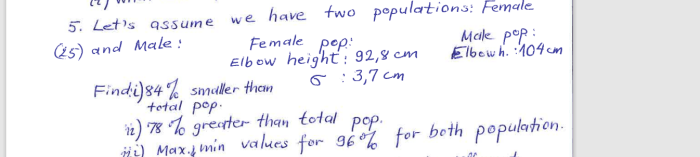 5. Let's assume we have two populations: Female
(25) and Male:
Female pop:
Elbow height: 92,8 cm
σ : 3,7 cm
Male pop:
Elbow h.: 104 cm
Find: i) 84% smaller than
total pop.
ii) 78 % greater than total pop.
iii) Max. & min values for 96% for both population.